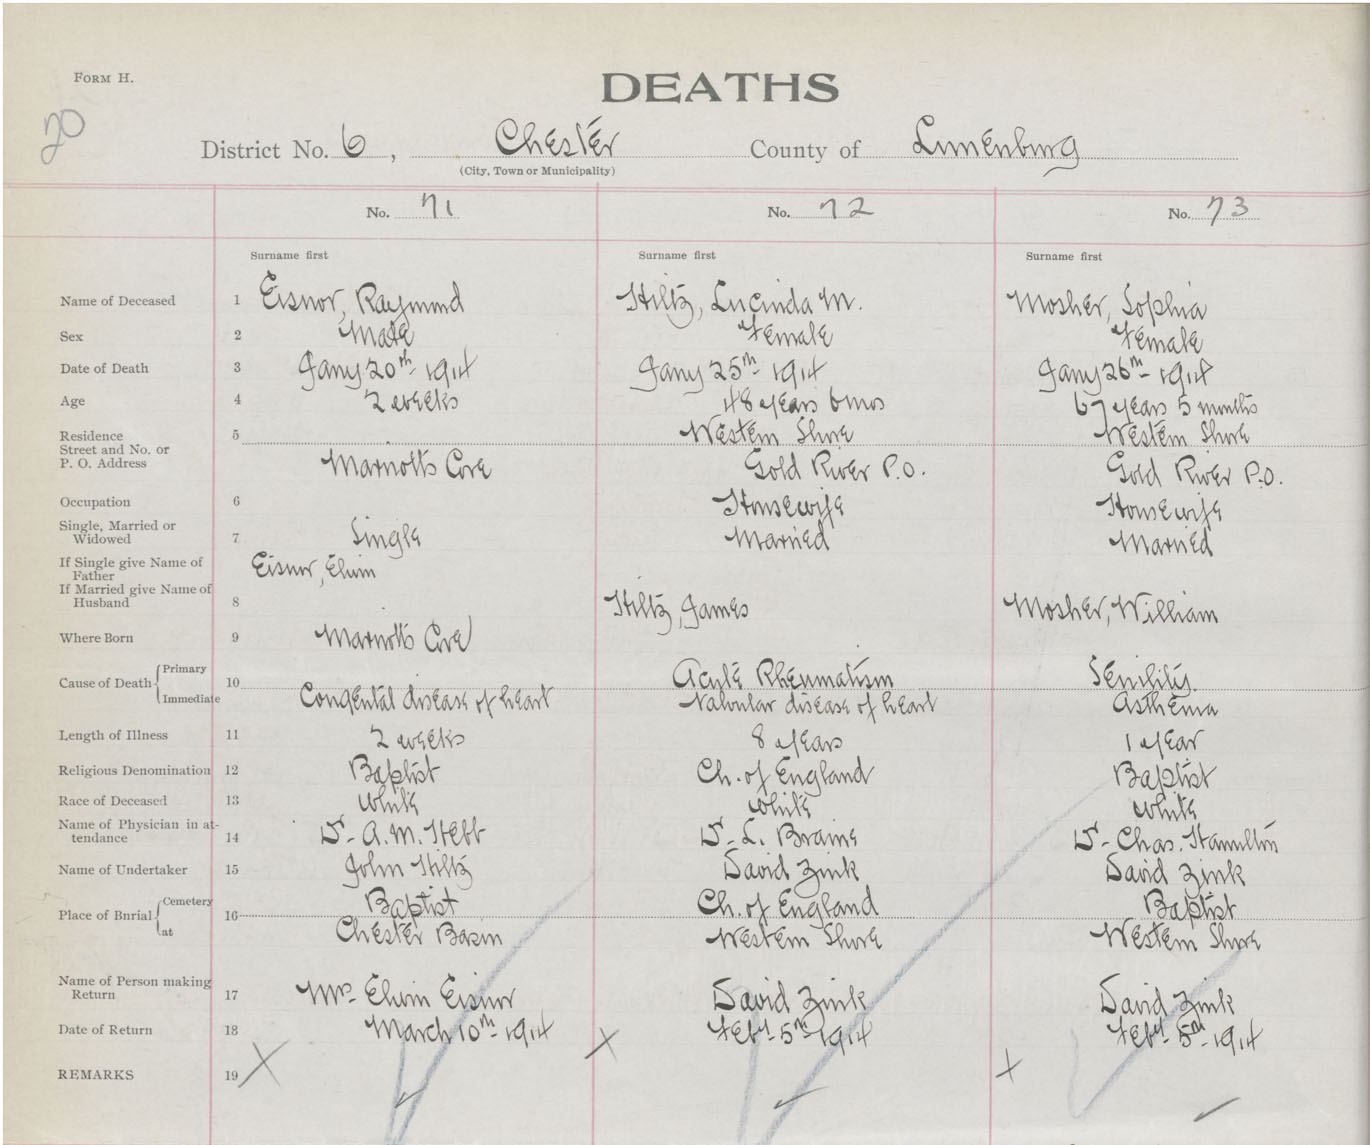 FORM H.
DEATHS
20
District No. 6, Chester County of Lunenburg
(City, Town or Municipality)
No. 71 No. 72 No. 73
Surname first Surname first Surname first
Name of Deceased 1 Eisnor, Raymond Hiltz, Lucinda M. Mosher, Sophia
Sex 2 Male Female Female
Date of Death 3 Jany 20th 1914 Jany 25th 1914 Jany 26th 1914
Age 4 2 weeks 48 years 6 mos 67 years 5 months
Residence 5 Western Shore Western Shore
Street and No. or
P. O. Address Marriotts Cove Gold River P.O. Gold River P.O.
Occupation 6 Housewife Housewife
Single, Married or
Widowed 7 Single Married Married
If Single give Name of
Father Eisnor, Elwin
If Married give Name of
Husband 8 Hiltz, James Mosher, William
Where Born 9 Marriotts Cove
Cause of Death Primary 10 Acute Rheumatism Senility.
Immediate Congental disease of heart Valvular disease of heart Asthema
Length of Illness 11 2 weeks 8 years 1 year
Religious Denomination 12 Baptist Ch. of England Baptist
Race of Deceased 13 White White White
Name of Physician in at-
tendance 14 Dr. A. M. Hebb Dr. L. Braine Dr. Chas. Hamilton
Name of Undertaker 15 John Hiltz David Zink David Zink
Place of Burial Cemetery 16 Baptist Ch. of England Baptist
at Chester Basin Western Shore Western Shore
Name of Person making
Return 17 Mrs Elwin Eisnor David Zink David Zink
Date of Return 18 March 10th 1914 Feby 5th 1914 Feby 5th 1914
REMARKS 19